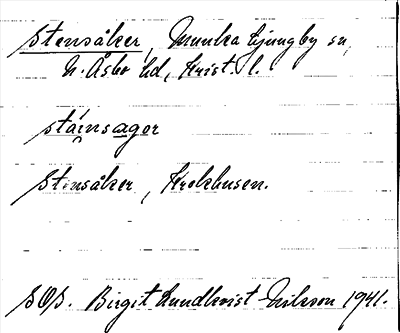 Stensåker, Munka Ljungby sn,
N. Åsbo hd, Krist. l.
stáinsagor
Stensåker, Krokhusen.
SOS. Birgit Lundkvist-Eriksson 1941.